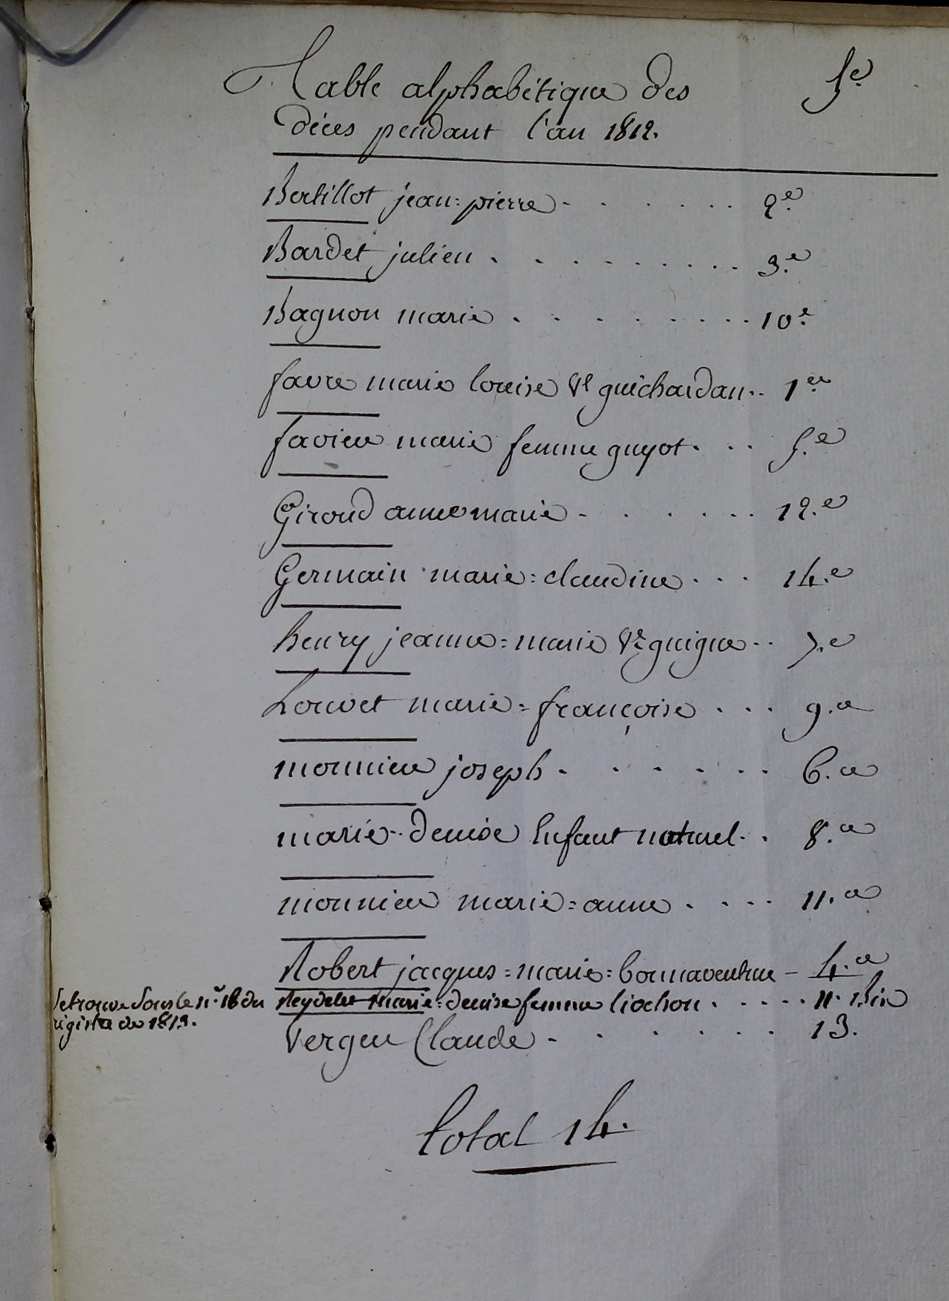 Table alphabétique des 5e
décès pendant l'an 1812.
Bertillot jean=pierre - - - - - - 2.e
Bardet julien . . . . . . . 3.e
Bagnon marie . . . . . . . 10.e
favre marie louise Ve guichardan.. 1.er
favier marie femme guyot . . . 5.e
Giroud anne marie - . . . . . 12.e
Germain marie=claudine . . . 14.e
henry jeanne=marie Ve guigue .. 7.e
Louvet marie=françoise . . . 9.e
monnier joseph . . . . . . 6.e
marie-denise Enfant naturel . . 8.e
monnier marie=anne . . . . 11.e
Robert jacques=marie=bonnaventure - 4.e
se trouve sous le n.o 16 du
registre de 1813.
Reydelet marie=denise femme liochon . . . . . 11. bis
Verguet Claude - . . . . . 13.
total 14.